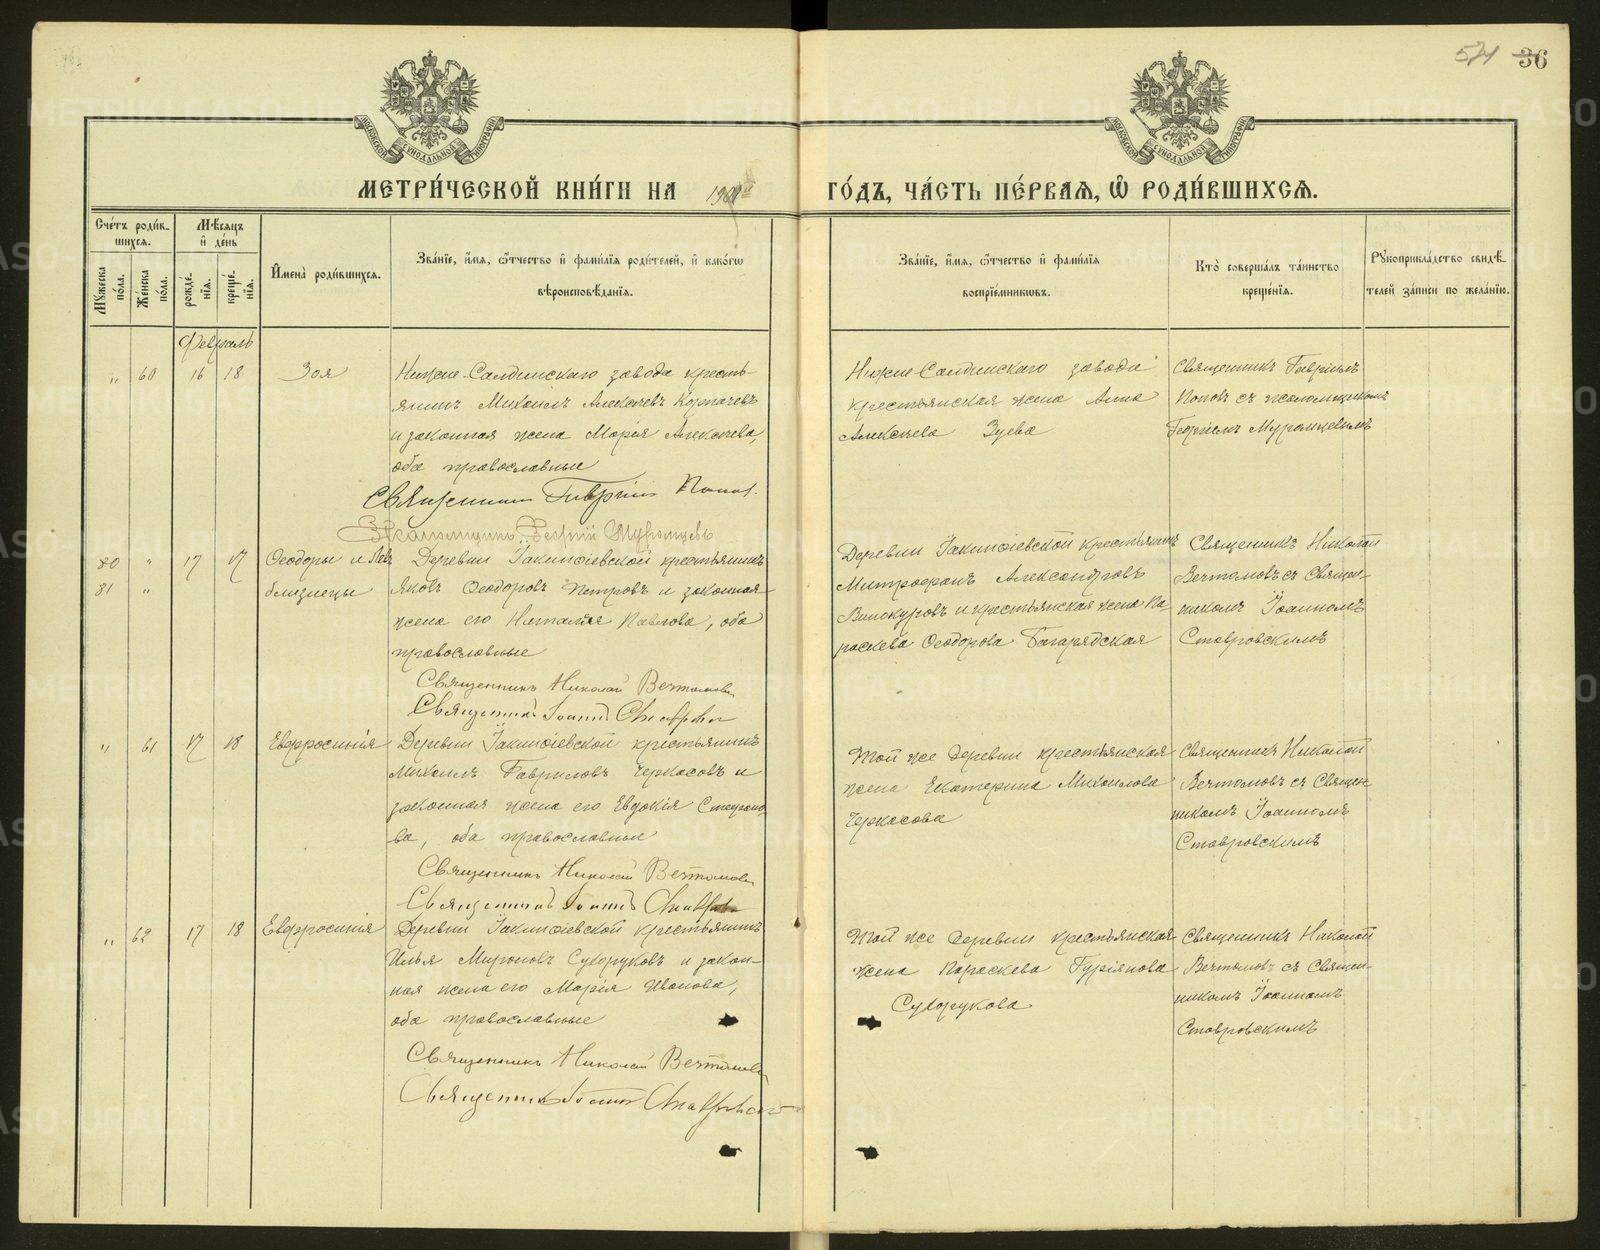 574 36
МЕТРИ́ЧЕСКОЙ КНИ́ГИ НА 190 ГО́ДЪ, ЧА́СТЬ ПЕ́РВАѦ, Ѡ РОДИ́ВШИХСѦ.
Сче́тъ роди́в-
шихся.
Мѣ́сяцъ
и҆ де́нь
Мꙋ́жеска по́ла.
Же́нска по́ла.
рожде́нїя.
креще́нїя.
И҆мена̀ роди́вшихся.
Зва́нїе, и҆́мя, ѻ҆́тчество и҆ фами́лїя роди́телей, и҆ како́гѡ
вѣроисповѣ́данїя.
Зва́нїе, и҆́мя, ѻ҆́тчество и҆ фами́лїя
воспрїе́мникѡвъ.
Кто̀ соверша́лъ та́инство
креще́нїя.
Рꙋкоприкла́дство свидѣ́-
телей за́писи по жела́нїю.
Февраль
" 60 16 18 Зоя
Нижне-Салдинскаго завода кресть-
янинъ Михаилъ Алексѣевъ
и законная жена Марія Алексѣева,
оба православные
Священникъ Гавріилъ Попов.
Псаломщикъ Георгій Муромцевъ
Нижне-Салдинскаго завода
крестьянская жена Анна
Алексѣева Зуева
Священникъ Гавріилъ
Поповъ съ псаломщикомъ
Георгіемъ Муромцевымъ
80 " 17 17 Ѳеодоръ и Левъ
81 " близнецы
Деревни Іакинѳіевской крестьянинъ
Яковъ Ѳеодоровъ Петровъ и законная
жена его Наталія Павлова, оба
православные
Священникъ Николай Вечтомовъ
Священникъ Іоаннъ Ставров
Деревни Іакинѳіевской крестьянинъ
Митрофанъ Александровъ
Винокуровъ и крестьянская жена Па-
раскева Ѳеодорова Багарядская
Священникъ Николай
Вечтомовъ съ Священ-
никомъ Іоанномъ
Ставровскимъ
" 61 17 18 Евфросинія
Деревни Іакинѳіевской крестьянинъ
Михаилъ Гавриловъ Черкасовъ и
законная жена его Евдокія Стефано-
ва, оба православные
Священникъ Николай Вечтомовъ
Священникъ Іоаннъ Ставров
Той же деревни крестьянская
жена Екатерина Михаилова
Черкасова
Священникъ Николай
Вечтомовъ съ Священ-
никомъ Іоанномъ
Ставровскимъ
" 62 17 18 Евфросинія
Деревни Іакинѳіевской крестьянинъ
Илья Мироновъ Сухоруковъ и закон-
ная жена его Марія Иванова,
оба православные
Священникъ Николай Вечтомовъ
Священникъ Іоаннъ Ставровскій
Той же деревни крестьянская
жена Параскева Гуріянова
Сухорукова
Священникъ Николай
Вечтомовъ съ Священ-
никомъ Іоанномъ
Ставровскимъ
METRIKI.GASO-URAL.RU